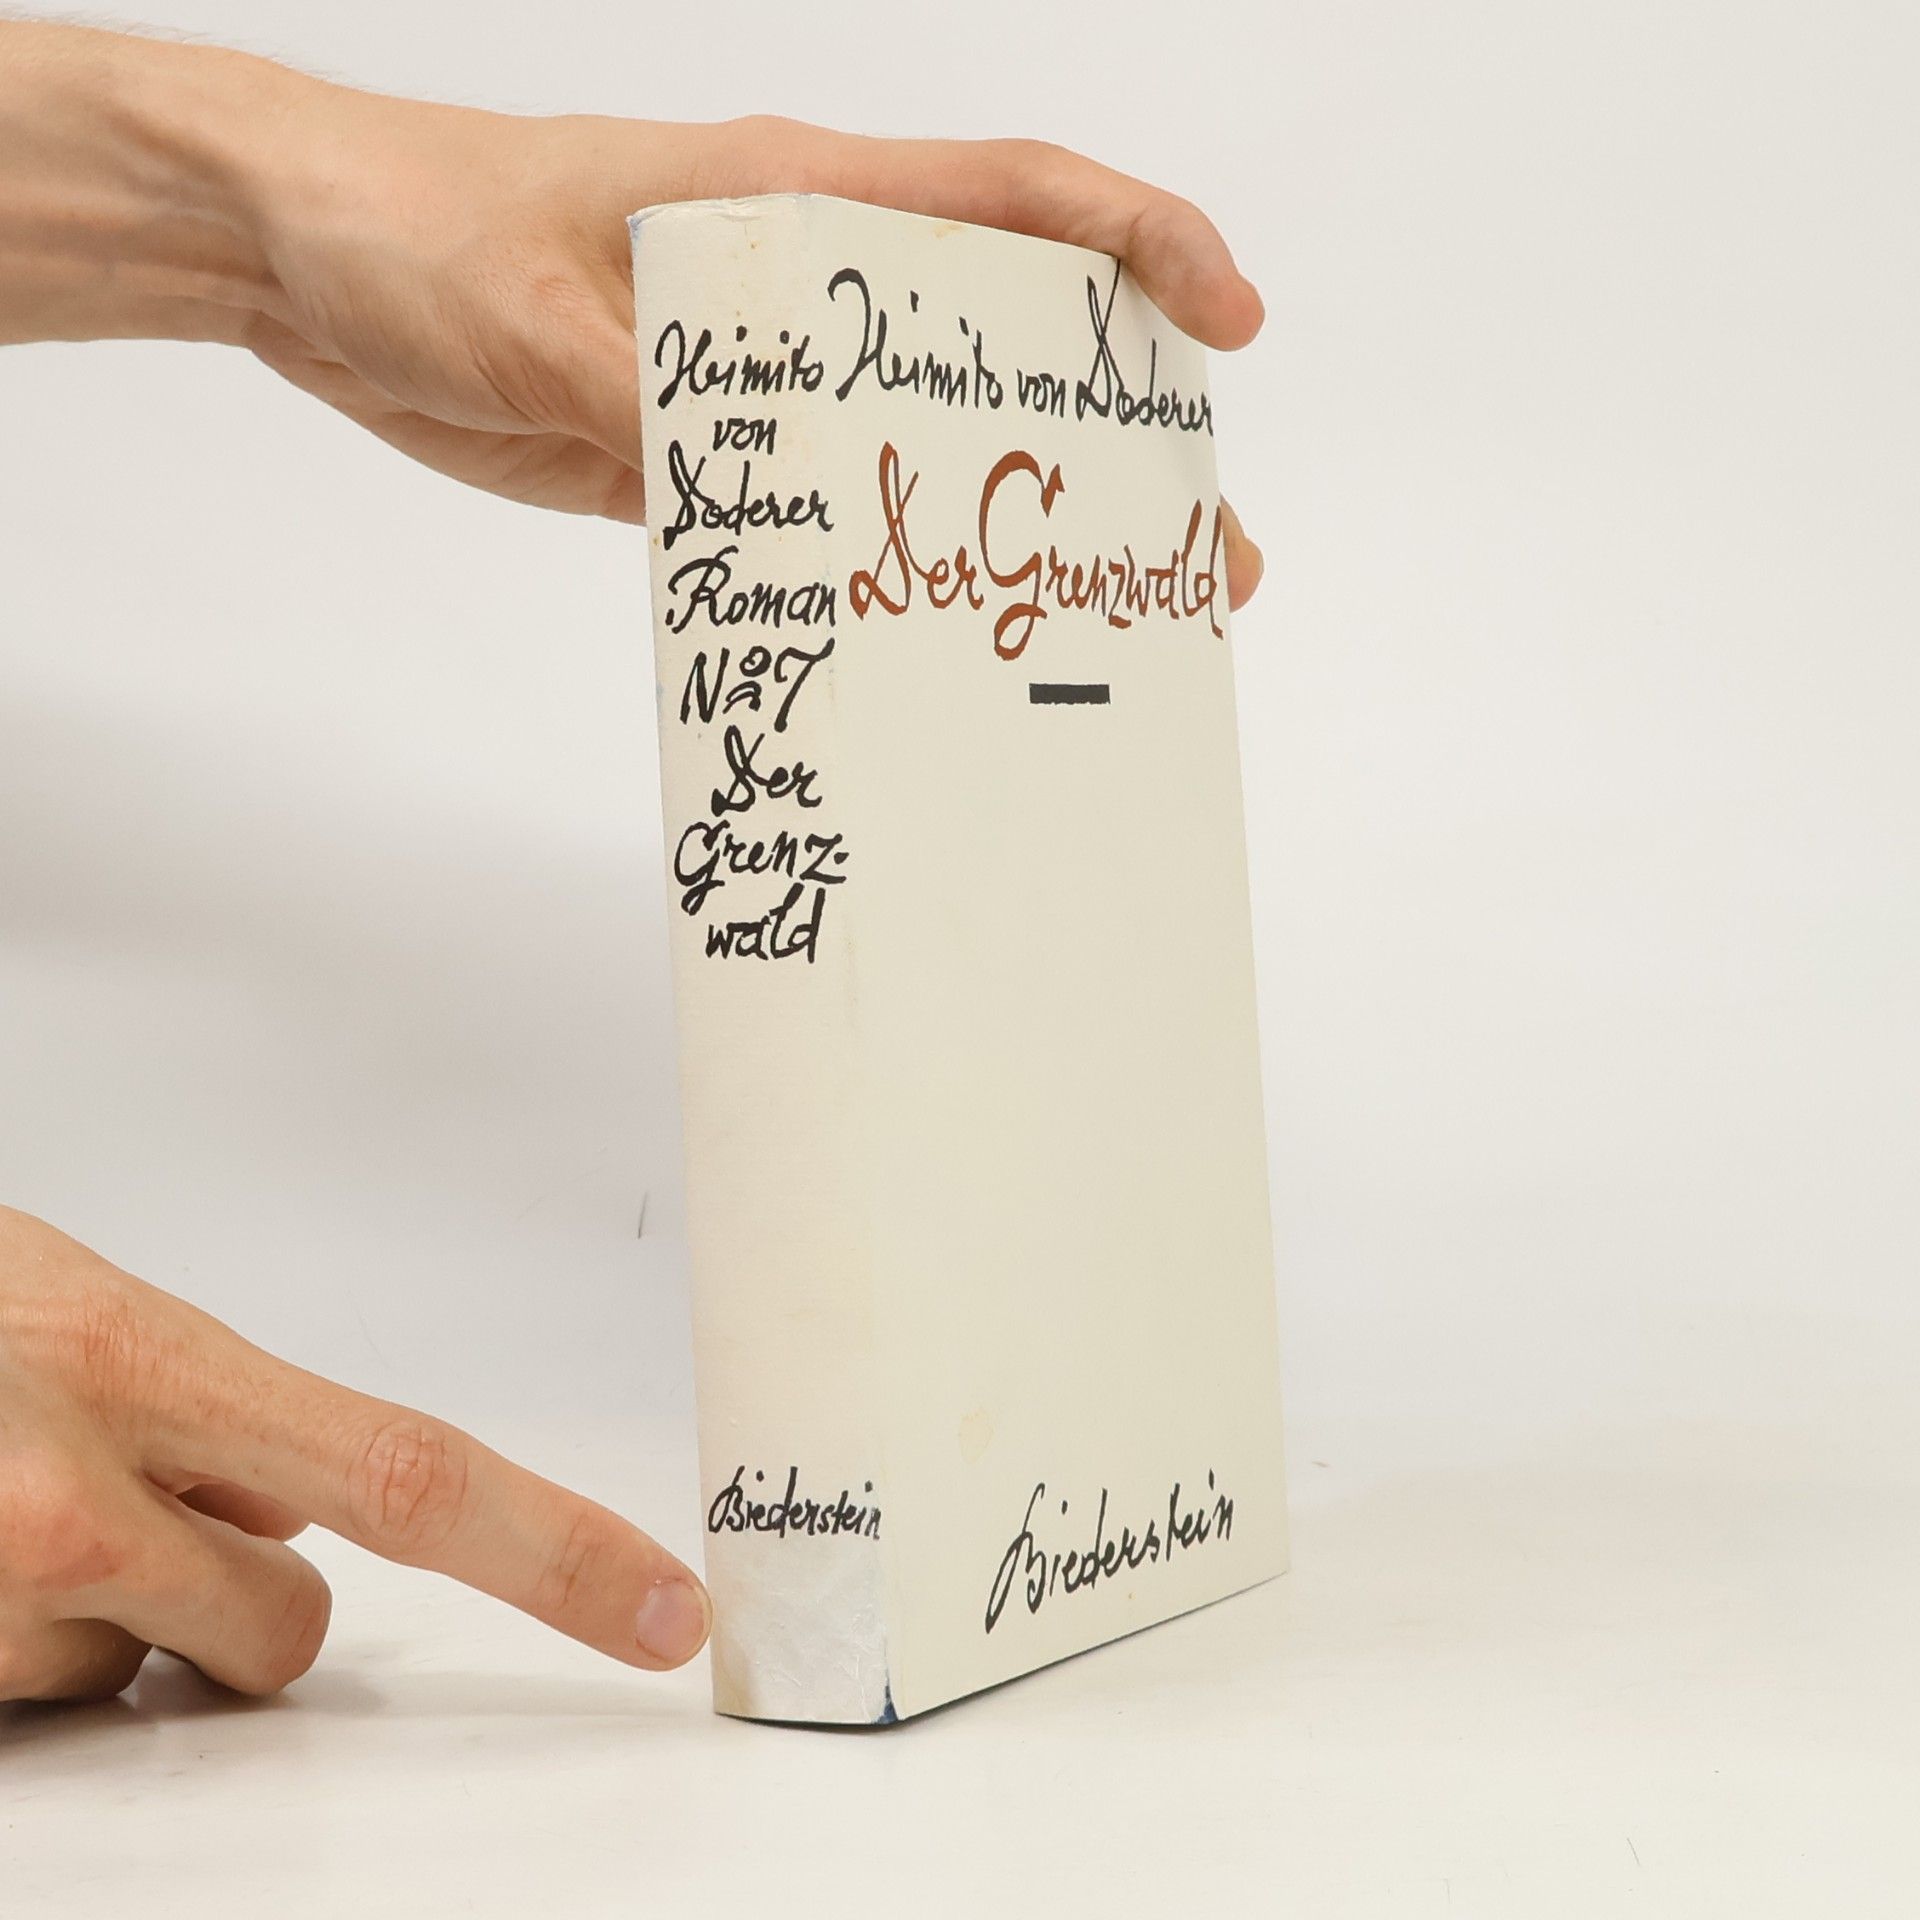 Heimito
von
Doderer
Roman
No 7
Der
Grenz-
wald
Biederstein
Heimito von Doderer
Der Grenzwald
Biederstein